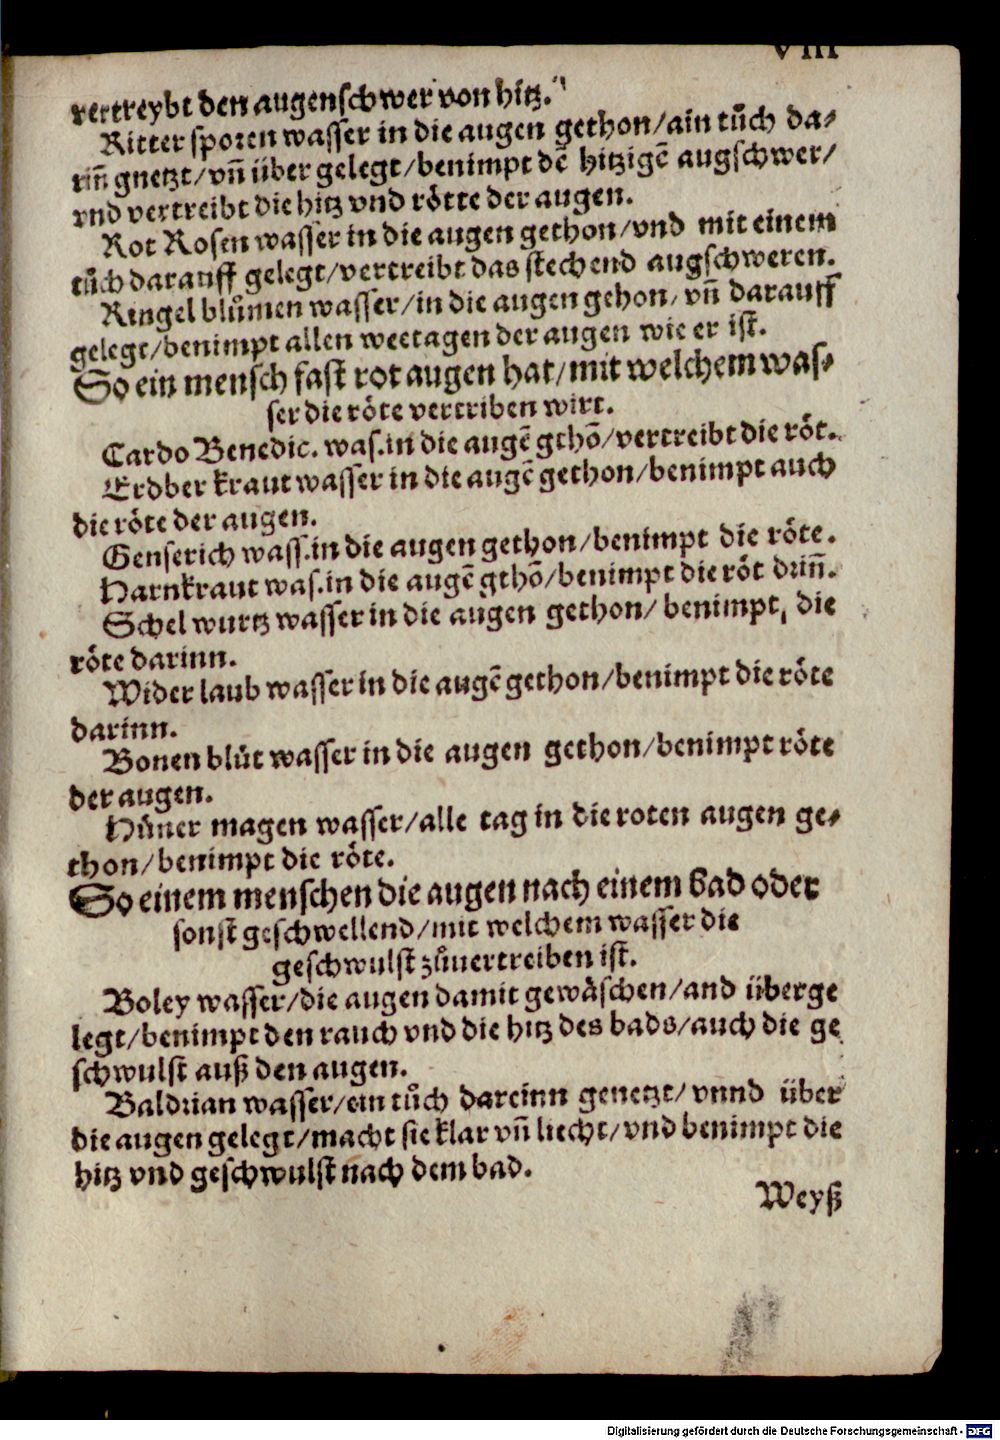 VIII
vertreybt den augenschwer von hitz.
Ritter sporen wasser in die augen gethon/ain tůch da⸗
rin̄ gnetzt/vn̄ über gelegt/benimpt dē hitzigē augschwer/
vnd vertreibt die hitz vnd rötte der augen.
Rot Rosen wasser in die augen gethon/vnd mit einem
tůch darauff gelegt/vertreibt das stechend augschweren.
Ringel blůmen wasser/in die augen gehon/vn̄ darauff
gelegt/benimpt allen weetagen der augen wie er ist.
So ein mensch fast rot augen hat/mit welchem was⸗
ser die röte vertriben wirt.
Cardo Benedic. was.in die augē gthō/vertreibt die röt.
Erdber kraut wasser in die augē gethon/benimpt auch
die röte der augen.
Genserich wass.in die augen gethon/benimpt die röte.
Harnkraut was.in die augē gthō/benimpt die röt drin̄.
Schel wurtz wasser in die augen gethon/benimpt, die
röte darinn.
Wider laub wasser in die augē gethon/benimpt die röte
darinn.
Bonen blüt wasser in die augen gethon/benimpt röte
der augen.
Hüner magen wasser/alle tag in die roten augen ge⸗
thon/benimpt die röte.
So einem menschen die augen nach einem bad oder
sonst geschwellend/mit welchem wasser die
geschwulst zůuertreiben ist.
Boley wasser/die augen damit gewäschen/and überge
legt/benimpt den rauch vnd die hitz des bads/auch die ge
schwulst auß den augen.
Baldrian wasser/ein tůch dareinn genetzt/vnnd über
die augen gelegt/macht sie klar vn̄ liecht/vnd benimpt die
hitz vnd geschwulst nach dem bad.
Weyß
Digitalisierung gefördert durch die Deutsche Forschungsgemeinschaft - DFG